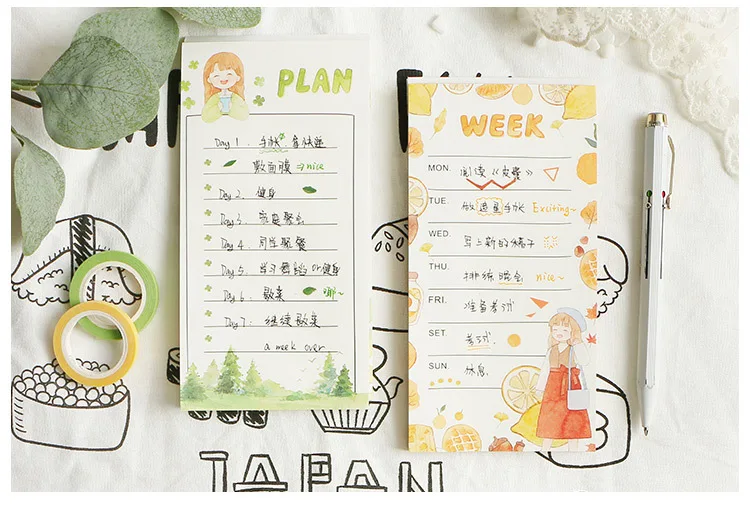 PLAN
Day 1. 手帐
敷面膜 ⇒ nice
Day 2. 健身
Day 3. 家庭聚会
Day 4. 同学聚餐
Day 5. 学习舞蹈 or 健身
Day 6. 歇菜
Day 7. 继续歇菜
a week over
WEEK
MON. 阅读《安徽》
TUE. 做造星手帐 Exciting~
WED. 写上新的稿子
THU. 排练晚会 nice~
FRI. 准备考试
SAT. 考试.
SUN. 休息
JAPAN